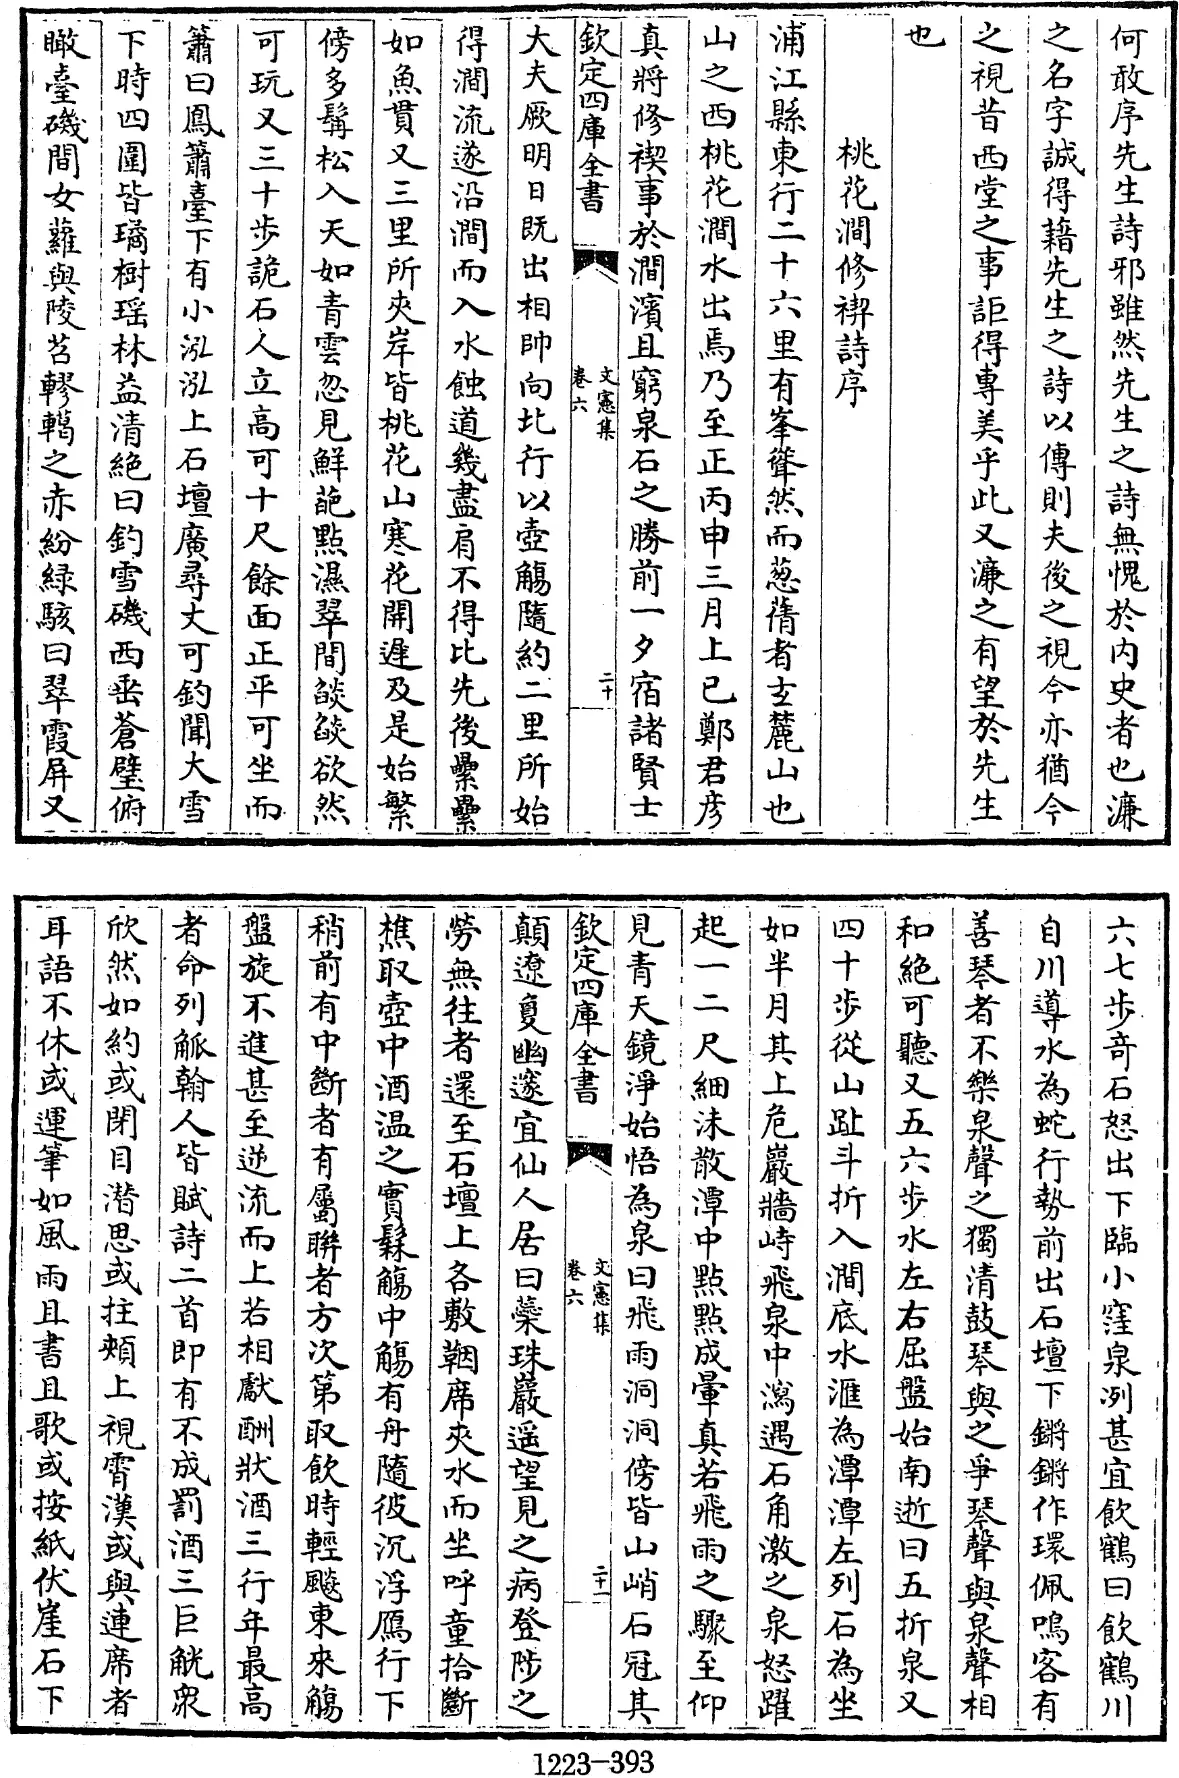 何敢序先生詩邪雖然先生之詩無愧於内史者也濂
之名字誠得藉先生之詩以傳則夫後之視今亦猶今
之視昔西堂之事詎得專美乎此又濂之有望於先生
也
桃花澗修禊詩序
浦江縣東行二十六里有峯聳然而葱蒨者玄麓山也
山之西桃花澗水出焉乃至正丙申三月上巳鄭君彦
真將修禊事於澗濱且窮泉石之勝前一夕宿諸賢士
欽定四庫全書
文憲集
卷六
二十
大夫厥明日既出相帥向北行以壺觴隨約二里所始
得澗流遂沿澗而入水蝕道幾盡肩不得比先後纍纍
如魚貫又三里所夾岸皆桃花山寒花開遲及是始繁
傍多髯松入天如青雲忽見鮮葩點濕翠間燄燄欲然
可玩又三十步詭石人立高可十尺餘面正平可坐而
簫曰鳳簫臺下有小泓泓上石壇廣尋丈可釣聞大雪
下時四圍皆璚樹瑶林益清絶曰釣雪磯西垂蒼壁俯
瞰臺磯間女蘿與陵苕轇轕之赤紛緑駭曰翠霞屏又
六七步奇石怒出下臨小窪泉冽甚宜飲鶴曰飲鶴川
自川導水為蛇行勢前出石壇下鏘鏘作環佩鳴客有
善琴者不樂泉聲之獨清鼓琴與之爭琴聲與泉聲相
和絶可聽又五六步水左右屈盤始南逝曰五折泉又
四十步從山趾斗折入澗底水滙為潭潭左列石為坐
如半月其上危巖牆峙飛泉中瀉遇石角激之泉怒躍
起一二尺細沬散潭中點點成暈真若飛雨之驟至仰
見青天鏡淨始悟為泉曰飛雨洞洞傍皆山峭石冠其
欽定四庫全書
文憲集
卷六
二十一
顛遼夐幽邃宜仙人居曰蘂珠巖遥望見之病登陟之
勞無往者還至石壇上各敷鞇席夾水而坐呼童拾斷
樵取壺中酒温之實髹觴中觴有舟隨彼沉浮鴈行下
稍前有中斷者有屬聨者方次第取飲時輕飈東來觴
盤旋不進甚至逆流而上若相獻酬狀酒三行年最高
者命列觚翰人皆賦詩二首即有不成罰酒三巨觥衆
欣然如約或閉目潛思或拄頰上視霄漢或與連席者
耳語不休或運筆如風雨且書且歌或按紙伏崖石下
1223-393